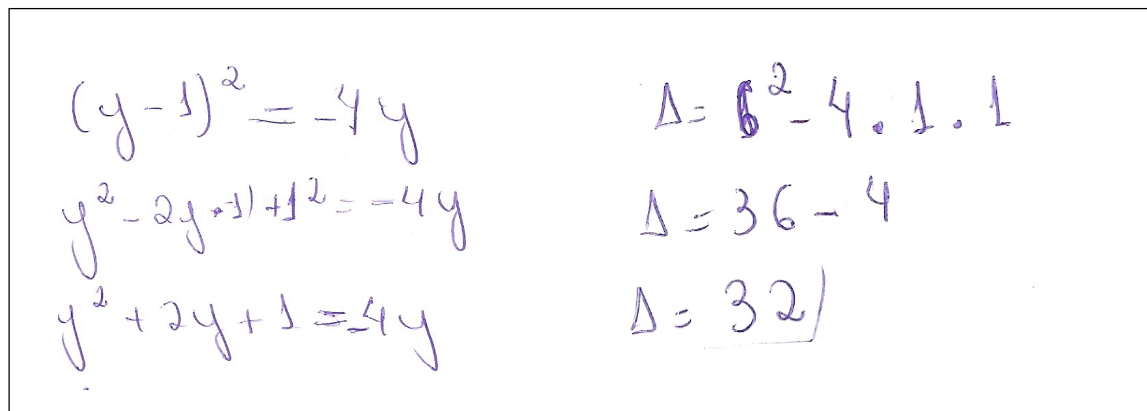 (y-1)² = -4y
y² - 2y·-1) + 1² = -4y
y² + 2y + 1 = -4y
Δ = 6² - 4 . 1 . 1
Δ = 36 - 4
Δ = 32